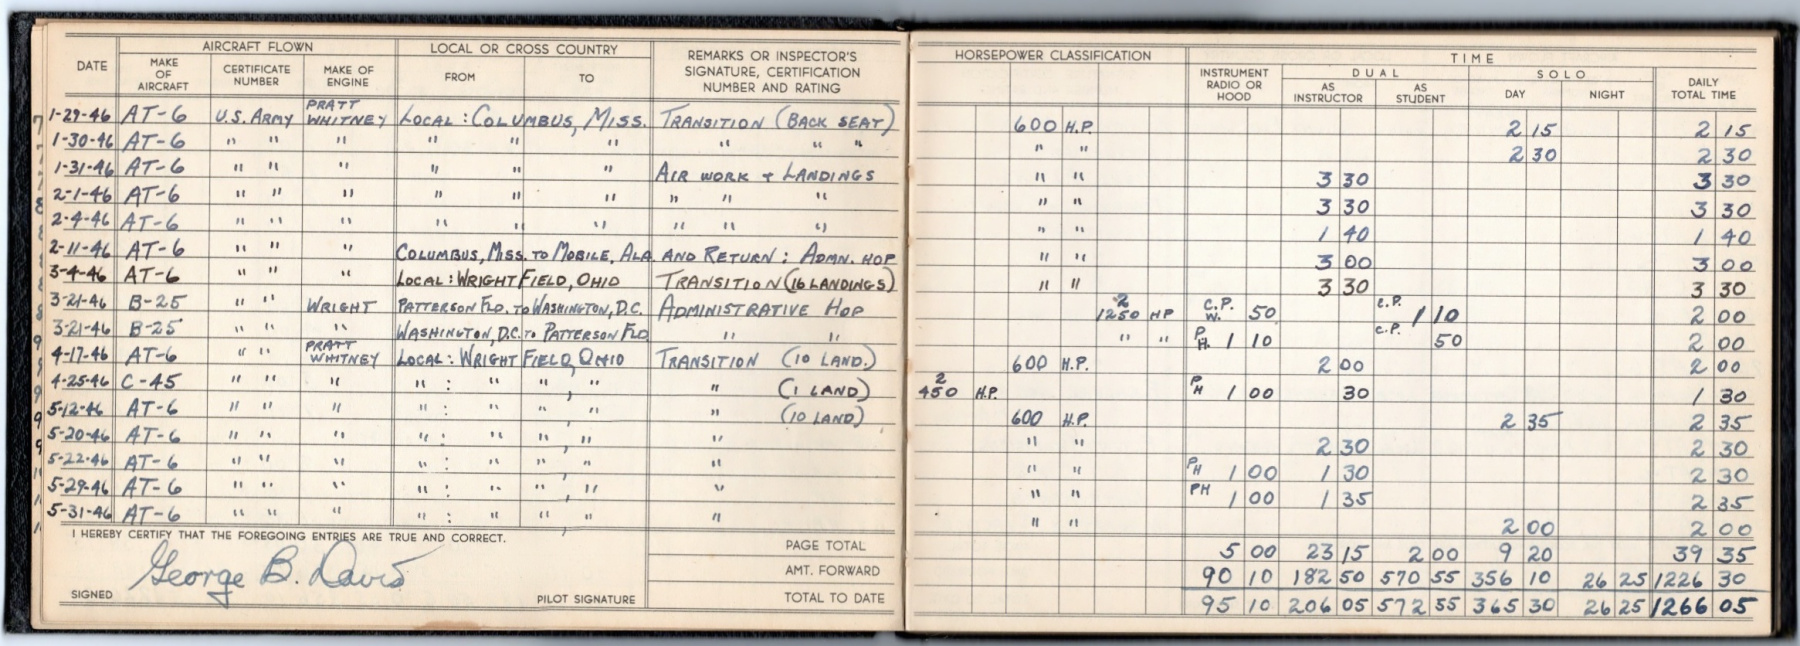 AIRCRAFT FLOWN LOCAL OR CROSS COUNTRY REMARKS OR INSPECTOR'S SIGNATURE, CERTIFICATION NUMBER AND RATING HORSEPOWER CLASSIFICATION TIME
DATE MAKE OF AIRCRAFT CERTIFICATE NUMBER MAKE OF ENGINE FROM TO INSTRUMENT RADIO OR HOOD DUAL SOLO DAILY TOTAL TIME
AS INSTRUCTOR AS STUDENT DAY NIGHT
1-29-46 AT-6 U.S. ARMY PRATT WHITNEY LOCAL : COLUMBUS, MISS. TRANSITION (BACK SEAT) 600 H.P. 2 15 2 15
1-30-46 AT-6 " " " " " " " " " " " 2 30 2 30
1-31-46 AT-6 " " " " " " AIR WORK + LANDINGS " " 3 30 3 30
2-1-46 AT-6 " " " " " " " " " " " 3 30 3 30
2-4-46 AT-6 " " " " " " " " " " " 1 40 1 40
2-11-46 AT-6 " " " COLUMBUS, MISS. TO MOBILE, ALA AND RETURN : ADMN. HOP " " 3 00 3 00
3-4-46 AT-6 " " " LOCAL : WRIGHT FIELD, OHIO TRANSITION (16 LANDINGS) " " 3 30 3 30
3-21-46 B-25 " " WRIGHT PATTERSON FLD. TO WASHINGTON, D.C. ADMINISTRATIVE HOP 2 1250 HP C.P. W. 50 C.P. 1 10 2 00
3-21-46 B-25 " " " WASHINGTON, D.C. TO PATTERSON FLD " " " " P. H. 1 10 C.P. 50 2 00
4-17-46 AT-6 " " PRATT WHITNEY LOCAL : WRIGHT FIELD, OHIO TRANSITION (10 LAND.) 600 H.P. 2 00 2 00
4-25-46 C-45 " " " " : " " , " " (1 LAND) 2 450 H.P. P H 1 00 30 1 30
5-12-46 AT-6 " " " " : " " , " " (10 LAND) 600 H.P. 2 35 2 35
5-20-46 AT-6 " " " " : " " , " " " " 2 30 2 30
5-22-46 AT-6 " " " " : " " , " " " " PH 1 00 1 30 2 30
5-29-46 AT-6 " " " " : " " , " " " " PH 1 00 1 35 2 35
5-31-46 AT-6 " " " " : " " , " " " " 2 00 2 00
I HEREBY CERTIFY THAT THE FOREGOING ENTRIES ARE TRUE AND CORRECT.
PAGE TOTAL 5 00 23 15 2 00 9 20 39 35
George B. Davis
AMT. FORWARD 90 10 182 50 570 55 356 10 26 25 1226 30
SIGNED PILOT SIGNATURE TOTAL TO DATE 95 10 206 05 572 55 365 30 26 25 1266 05